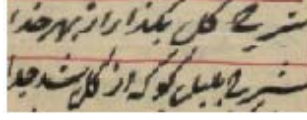 شرح گل بگذار از بهر خدا
شرح بلبل گو که از گل شد جدا